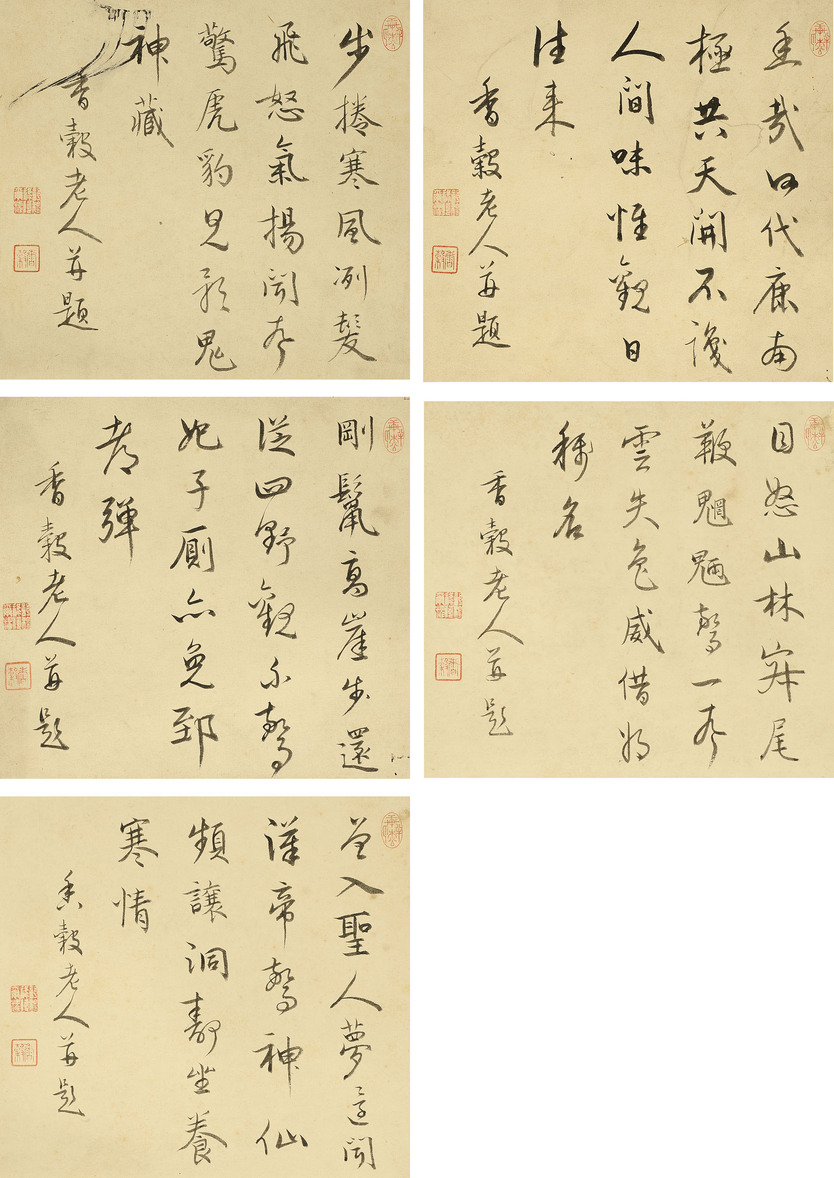 步捲寒風冽髮
飛怒氣揚聞聲
驚虎豹見影鬼
神藏
香穀老人并題
哉何代鹿南
極共天開不識
人間味惟觀日
往来
香穀老人并題
剛鬣高崖步還
從四野觀不驚
妃子厠亦免郅
都彈
香穀老人并題
目怒山林寂尾
鞭魍魎驚一聲
雲失色威借
稱名
香穀老人并題
曾入聖人夢還聞
漢帝驚神仙
頻讓洞靜坐養
寒情
香穀老人并題